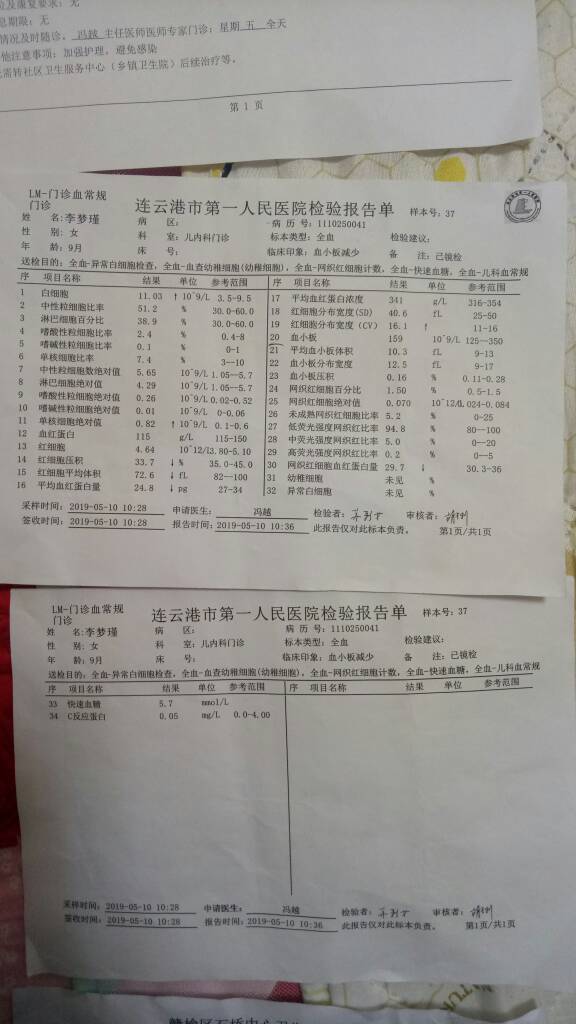 及康复要求：无
息期限：无
情况及时随诊。 冯越 主任医师医师专家门诊：星期 五 全天
他注意事项：加强护理，避免感染
需转社区卫生服务中心（乡镇卫生院）后续治疗等。
第 1 页
LM-门诊血常规
门诊
连云港市第一人民医院检验报告单 样本号：37
姓 名：李梦瑾 病 区： 病 历 号：1110250041
性 别：女 科 室：儿内科门诊 标本类型：全血 检验建议：
年 龄：9月 床 号： 临床印象：血小板减少 备 注：已镜检
送检目的：全血-异常白细胞检查，全血-血查幼稚细胞(幼稚细胞)，全血-网织红细胞计数，全血-快速血糖，全血-儿科血常规
序 项目名称 结果 单位 参考范围 序 项目名称 结果 单位 参考范围
1 白细胞 11.03 ↑ 10^9/L 3.5-9.5 17 平均血红蛋白浓度 341 g/L 316-354
2 中性粒细胞比率 51.2 % 30.0-60.0 18 红细胞分布宽度(SD) 40.6 fL 25-50
3 淋巴细胞百分比 38.9 % 30.0-60.0 19 红细胞分布宽度(CV) 16.1 ↑ 11-16
4 嗜酸性粒细胞比率 2.4 % 0.4-8 20 血小板 159 10^9/L 125--350
5 嗜碱性粒细胞比率 0.1 % 0-1 21 平均血小板体积 10.3 fL 9-13
6 单核细胞比率 7.4 % 3--10 22 血小板分布宽度 12.5 fL 9-17
7 中性粒细胞数绝对值 5.65 10^9/L 1.05--5.7 23 血小板压积 0.16 % 0.11-0.28
8 淋巴细胞绝对值 4.29 10^9/L 1.05--5.7 24 网织红细胞百分比 1.50 % 0.5-1.5
9 嗜酸性粒细胞绝对值 0.26 10^9/L 0.02-0.52 25 网织红细胞绝对值 0.070 10^12/L 0.024-0.084
10 嗜碱性粒细胞绝对值 0.01 10^9/L 0-0.06 26 未成熟网织红细胞比率 5.2 % 0-25
11 单核细胞绝对值 0.82 ↑ 10^9/L 0.1-0.6 27 低荧光强度网织红比率 94.8 % 80--100
12 血红蛋白 115 g/L 115-150 28 中荧光强度网织红比率 5.0 % 0--20
13 红细胞 4.64 10^12/L 3.80-5.10 29 高荧光强度网织红比率 0.2 % 0--5
14 红细胞压积 33.7 ↓ % 35.0-45.0 30 网织红细胞血红蛋白量 29.7 ↓ 30.3-36
15 红细胞平均体积 72.6 ↓ fL 82--100 31 幼稚细胞 未见 %
16 平均血红蛋白量 24.8 ↓ pg 27-34 32 异常白细胞 未见 %
采样时间：2019-05-10 10:28 申请医生： 冯越 检验者： 审核者：
签收时间：2019-05-10 10:28 报告时间：2019-05-10 10:36 此报告仅对此标本负责。 第1页/共1页
LM-门诊血常规
门诊
连云港市第一人民医院检验报告单 样本号：37
姓 名：李梦瑾 病 区： 病 历 号：1110250041
性 别：女 科 室：儿内科门诊 标本类型：全血 检验建议：
年 龄：9月 床 号： 临床印象：血小板减少 备 注：已镜检
送检目的：全血-异常白细胞检查，全血-血查幼稚细胞(幼稚细胞)，全血-网织红细胞计数，全血-快速血糖，全血-儿科血常规
序 项目名称 结果 单位 参考范围 序 项目名称 结果 单位 参考范围
33 快速血糖 5.7 mmol/L
34 C反应蛋白 0.05 mg/L 0.0-4.00
采样时间：2019-05-10 10:28 申请医生： 冯越 检验者： 审核者：
签收时间：2019-05-10 10:28 报告时间：2019-05-10 10:36 此报告仅对此标本负责。 第1页/共1页